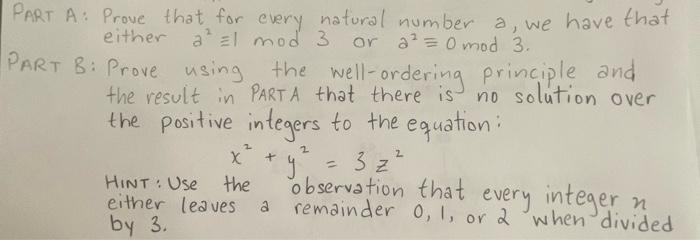 PART A: Prove that for every natural number a, we have that
either a² ≡1 mod 3 or a² ≡ 0 mod 3.
PART B: Prove using the well-ordering principle and
the result in PART A that there is no solution over
the positive integers to the equation:
x² + y² = 3z²
HINT: Use the observation that every integer n
either leaves a remainder 0, 1, or 2 when divided
by 3.